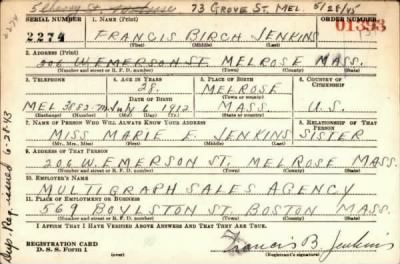 73 GROVE ST. MEL. 5/28/45
SERIAL NUMBER 1. NAME (Print) ORDER NUMBER
2274 FRANCIS BIRCH JENKINS 01393
(First) (Middle) (Last)
2. ADDRESS (Print)
206 W. EMERSON ST. MELROSE MASS.
(Number and street or R. F. D. number) (Town) (County) (State)
3. TELEPHONE 4. AGE IN YEARS 5. PLACE OF BIRTH 6. COUNTRY OF CITIZENSHIP
28. MELROSE
DATE OF BIRTH (Town or county)
MEL 3882 July 6 1912 MASS. U.S.
(Exchange) (Number) (Mo.) (Day) (Yr.) (State or country)
7. NAME OF PERSON WHO WILL ALWAYS KNOW YOUR ADDRESS 8. RELATIONSHIP OF THAT PERSON
MISS MARIE E. JENKINS SISTER
(Mr., Mrs., Miss) (First) (Middle) (Last)
9. ADDRESS OF THAT PERSON
206 W. EMERSON ST. MELROSE MASS.
(Number and street or R. F. D. number) (Town) (County) (State)
10. EMPLOYER'S NAME
MULTIGRAPH SALES AGENCY
11. PLACE OF EMPLOYMENT OR BUSINESS
569 BOYLSTON ST. BOSTON MASS.
(Number and street or R. F. D. number) (Town) (County) (State)
I AFFIRM THAT I HAVE VERIFIED ABOVE ANSWERS AND THAT THEY ARE TRUE.
REGISTRATION CARD
D. S. S. Form 1
Francis B. Jenkins
(Registrant's signature)